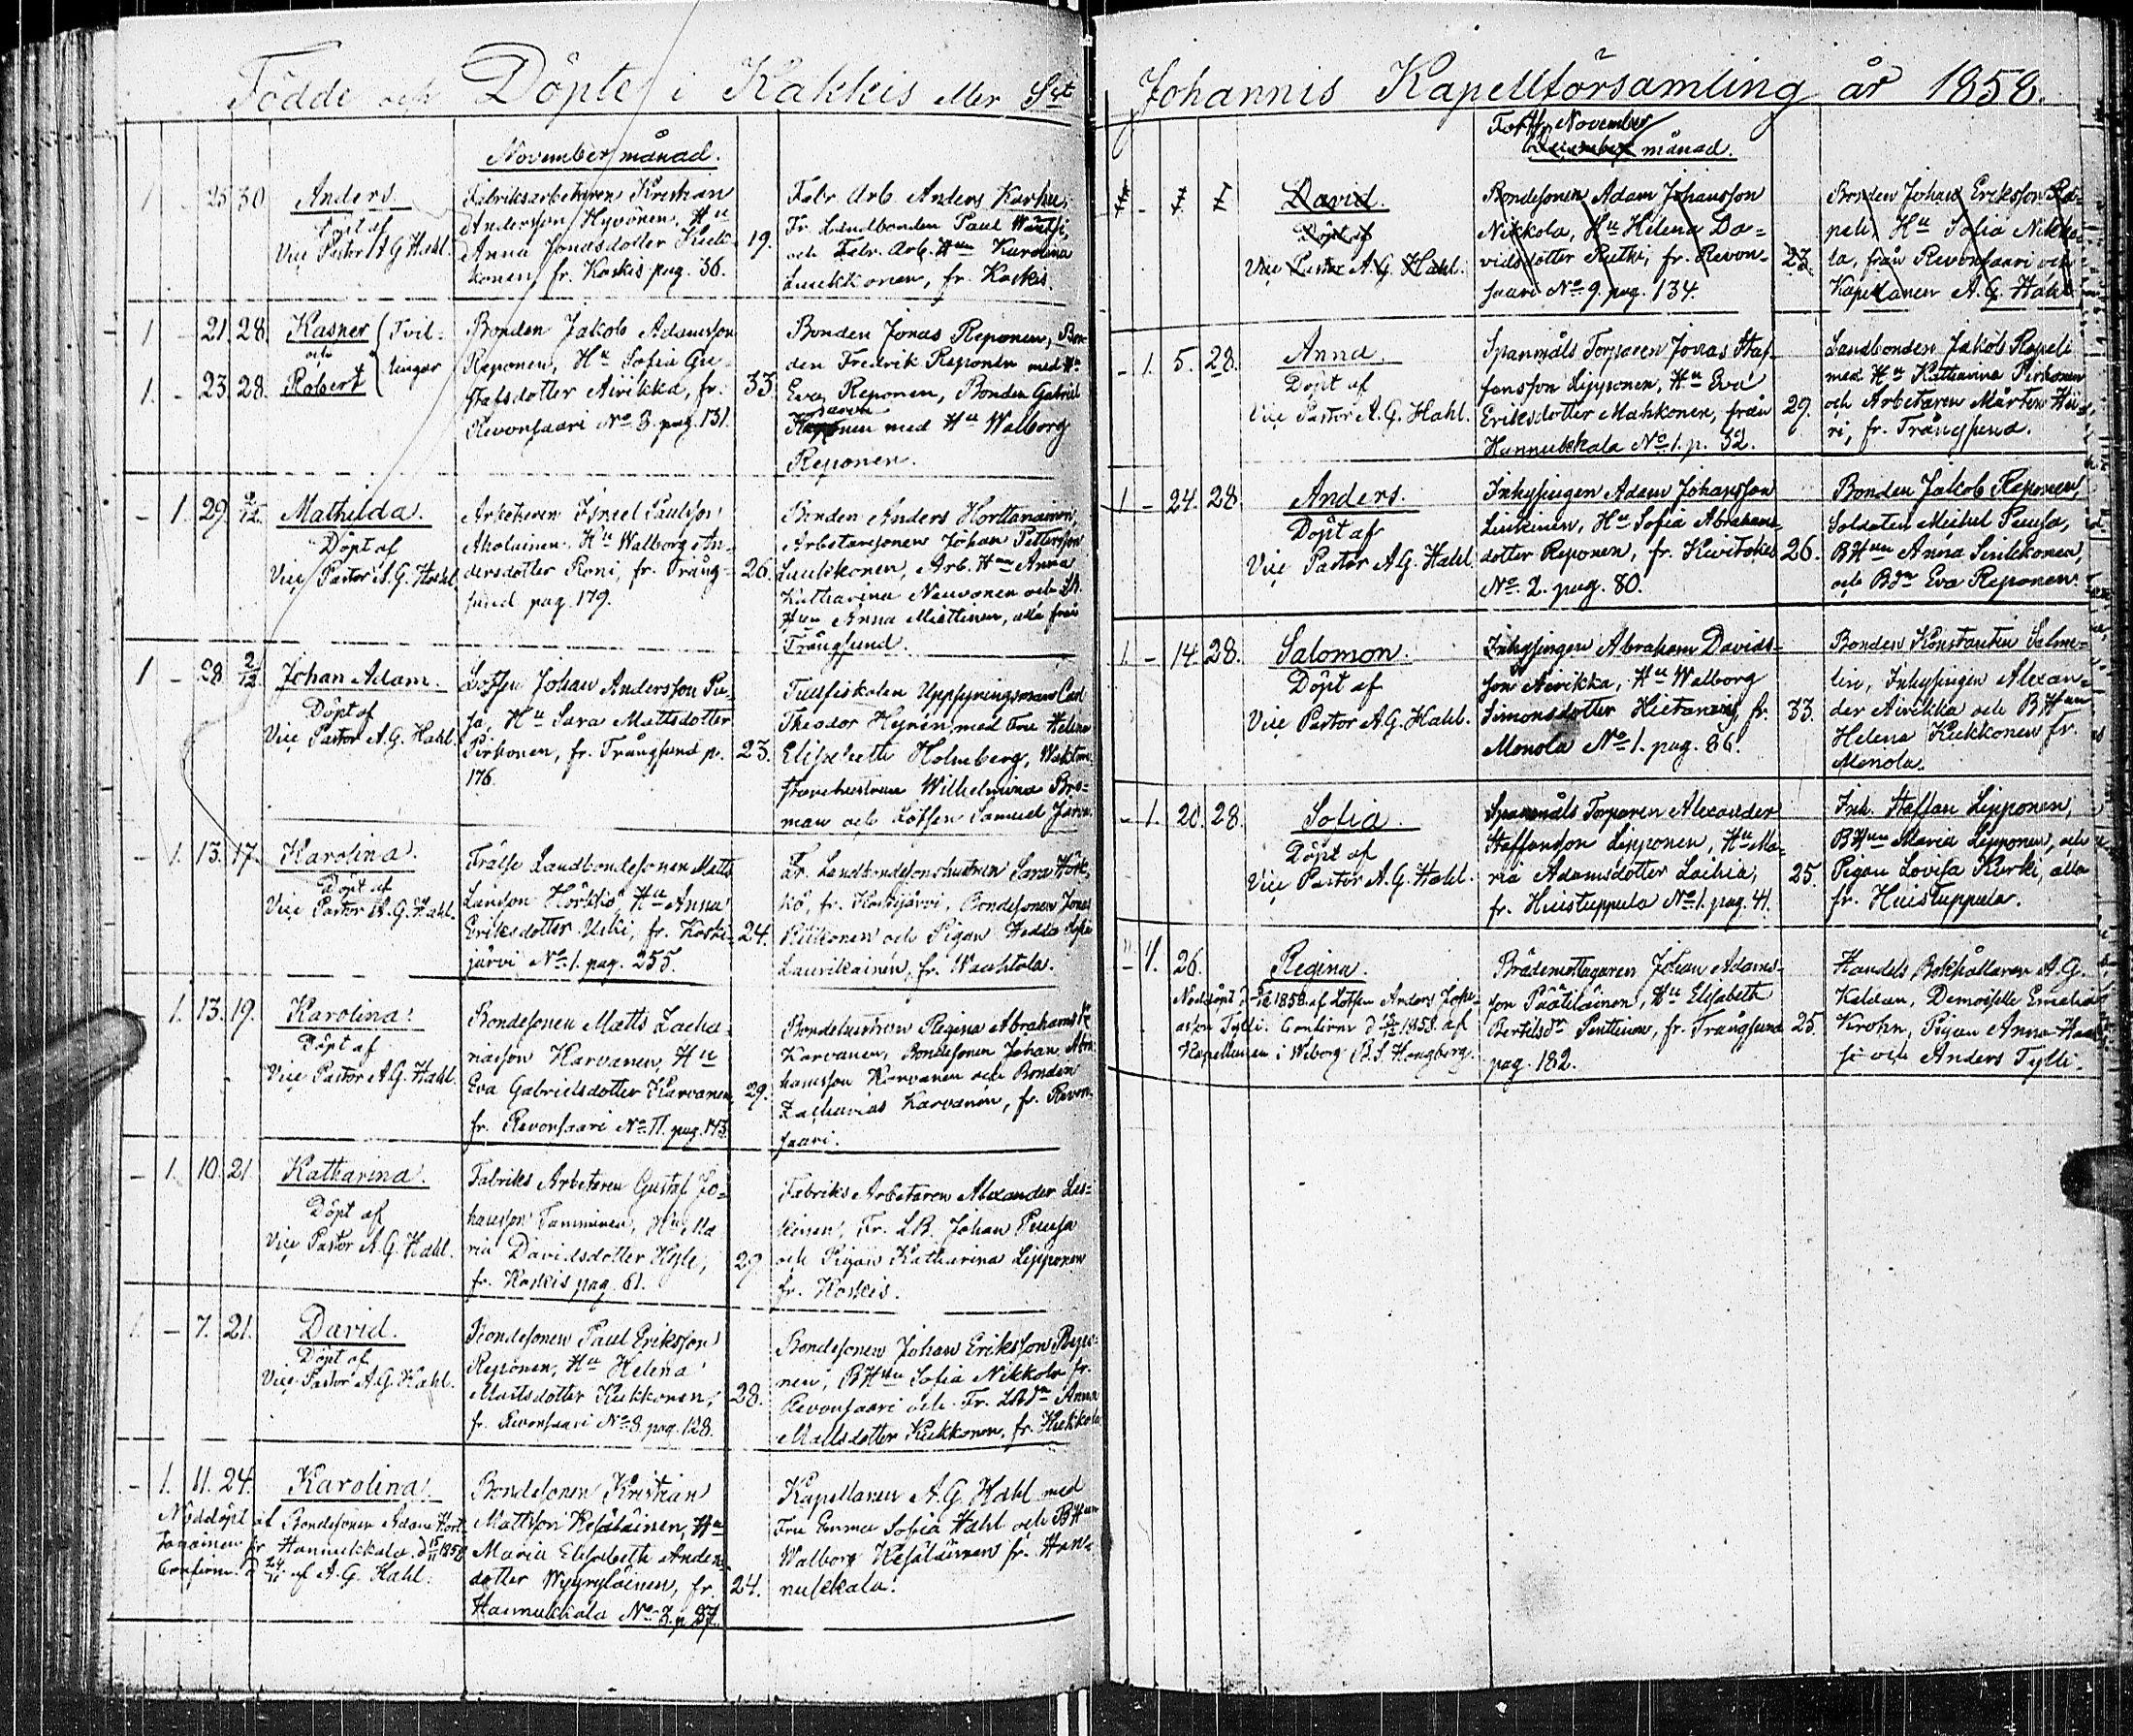 Födde och Döpte i Kakkis eller S:t
November månad.
1 - 25 30 Anders
Döpt af
Vice Pastor A G Hahl.
Fabriksarbetaren Kristian
Andersson Hyvönen, Hu
Anna Jonasdotter Kuk-
konen, fr. Koskis pag. 36.
19.
Fabr. Arb. Anders Karhu,
Fr. Landbonden Paul
och Fabr. Arb. Hun Karolina
Luukkonen, fr. Koskis.
1 - 21. 28. Kasper
och
1. - 23. 28. Robert
Tvil-
lingar
Bonden Jakob Adamsson
Reponen, Hu Sofia Gu-
stafsdotter Airikka, fr.
Revonsaari No 3. pag. 131.
33.
Bonden Jonas Reponen, Bon-
den Fredrik Reponen med Hu
Eva Reponen, Bonden Gabriel
med Hu Walborg
Reponen.
- 1. 29. 2/12. Mathilda.
Döpt af
Vice Pastor A. G. Hahl
Arbetaren Israel Paulsson
Aholainen. Hu Walborg An-
dersdotter Roni, fr. Trång-
sund pag. 179.
26.
Bonden Anders Horttanainen,
Arbetaresonen Johan Pettersson
Luukkonen, Arb. Hun Anna
Katharina Nauvonen och
Hun Anna Miettinen, alla från
Trångsund.
1 - 28. 2/12 Johan Adam.
Döpt af
Vice Pastor A. G. Hahl.
Lotsen Johan Andersson Pu-
sa, Hu Sara Mattsdotter
Pirhonen, fr. Trångsund p.
176.
23.
Tullfiskalen Uppsyningsman Carl
Theodor Heyrén med Fru Helena
Elisabeth Holmberg, Waktmä-
starehustrun Wilhelmina Bro-
man och Lotsen Samuel
- 1. 13. 17. Karolina.
Döpt af
Vice Pastor A. G. Hahl.
Frälse Landbondesonen Matts
Larsson Hörkkö Hu Anna
Eriksdotter Uski, fr. Koski-
järvi No 1. pag. 255.
24.
Fr. Landbondesonshustrun Sara Hörk-
kö, fr. Koskijärvi, Bondesonen Jonas
och Pigan Hedda Sofia
Laurikainen, fr. Waahtola.
1. 13. 19. Karolina.
Döpt af
Vice Pastor A. G. Hahl.
Bondesonen Matts Zacha-
riasson Karvanen, Hu
Eva Gabrielsdotter Karvanen,
fr. Revonsaari No 11. pag. 143.
29.
Bondehustrun Regina Abrahamsdr
Karvanen, Bondesonen Johan Abra-
hamsson Karvanen och Bonden
Zacharias Karvanen, fr. Revon-
saari.
- 1. 10. 21. Katharina.
Döpt af
Vice Pastor A. G. Hahl.
Fabriks Arbetaren Gustaf Jo-
hansson Tamminen, Hu Ma
ria Davidsdotter
fr. Koskis pag. 61.
29.
Fabriks Arbetaren Alexander Les-
kinen, Fr. LB. Johan Puusa
och Pigan Katharina Lipponen
fr. Koskis.
1. - 7. 21. David.
Döpt af
Vice Pastor A. G. Hahl.
Bondesonen Paul Eriksson
Reponen, Hu Helena
Mattsdotter Kukkonen,
fr. Revonsaari No 8 pag. 128.
28.
Bondesonen Johan Eriksson Repo-
nen, BHun Sofia Nikkola fr.
Revonsaari och Fr. LBdr Anna
Mattsdotter Kukkonen, fr.
- 1. 11. 24. Karolina.
Nöddöpt af Bondesonen Adam Hort-
tanainen fr. Hannukkala d 15/11 1858
Confirm. d 24/11 af A. G. Hahl.
Bondesonen Kristian
Mattsson Kesäläinen, Hu
Maria Elisabeth Anders
dotter Wyyryläinen, fr.
Hannukkala No 3. p 87.
24.
Kapellanen A. G. Hahl med
Fru Emma Sofia Hahl och BHun
Walborg Kesäläinen fr. Han-
nukkala.
Johannis Kapellförsamling år 1858.
Forts. November
December månad.
1 - 7 7 David.
Döpt af
Vice Pastor A. G. Hahl.
Bondesonen Adam Johansson
Nikkola, Hu Helena Da-
vidsdotter Ruthi, fr. Revon-
saari No 9. pag. 134.
23.
Bonden Johan Eriksson Ra-
peli, Hu Sofia Nikko-
la, från Revonsaari och
Kapellanen A. G. Hahl
- 1. 5. 28. Anna.
Döpt af
Vice Pastor A. G. Hahl.
Spanmåls Torparen Jonas Staf-
fansson Lipponen, Hu Eva
Eriksdotter Mahkonen, från
Hannukkala No 1. p. 52.
29.
Landbonden Jakob Rapeli
med Hu Katharina Pirhonen
och Arbetaren Mårten Hii-
ri, fr. Trångsund.
1 - 24. 28. Anders.
Döpt af
Vice Pastor A. G. Hahl.
Inhysingen Adam Johansson
Liukinen, Hu Sofia Abrahams-
dotter Reponen, fr.
No. 2. pag. 80.
26.
Bonden Jakob Reponen,
Soldaten Michel Puusa,
BHun Anna Sinkkonen,
och Bdr Eva Reponen.
1. - 14. 28. Salomon.
Döpt af
Vice Pastor A. G. Hahl.
Inhysingen Abraham Davids-
son Airikka, Hu Walborg
Simonsdotter Hietanen, fr.
Monola No 1. pag. 86.
33.
Bonden Konstantin Salme-
lin, Inhysingen Alexan-
der Airikka och BHun
Helena Kukkonen fr.
Monola.
- 1. 20. 28. Sofia.
Döpt af
Vice Pastor A. G. Hahl.
Spanmåls Torparen Alexander
Staffansson Lipponen, Hu Ma-
ria Adamsdotter Laihia,
fr. Huistuppula No 1. pag. 41.
25.
Inh. Staffan Lipponen,
BHun Maria Lipponen, och
Pigan Lovisa Kurki, alla
fr. Huistuppula.
- 1. 26. Regina.
Nöddöpt 1858. af Lotsen Anders
Tylli. Confirm. 1858. af
Kapellanen i Wiborg B. S. Hougberg.
Brädemottagaren Johan Adams-
son Päätiläinen, Hu Elisabeth
Bertilsdr Penttinen, fr. Trångsund
pag. 182.
25.
Handels Bokhållaren A. G.
Demoiselle Emelia
Krohn, Pigan Anna
och Anders Tylli.